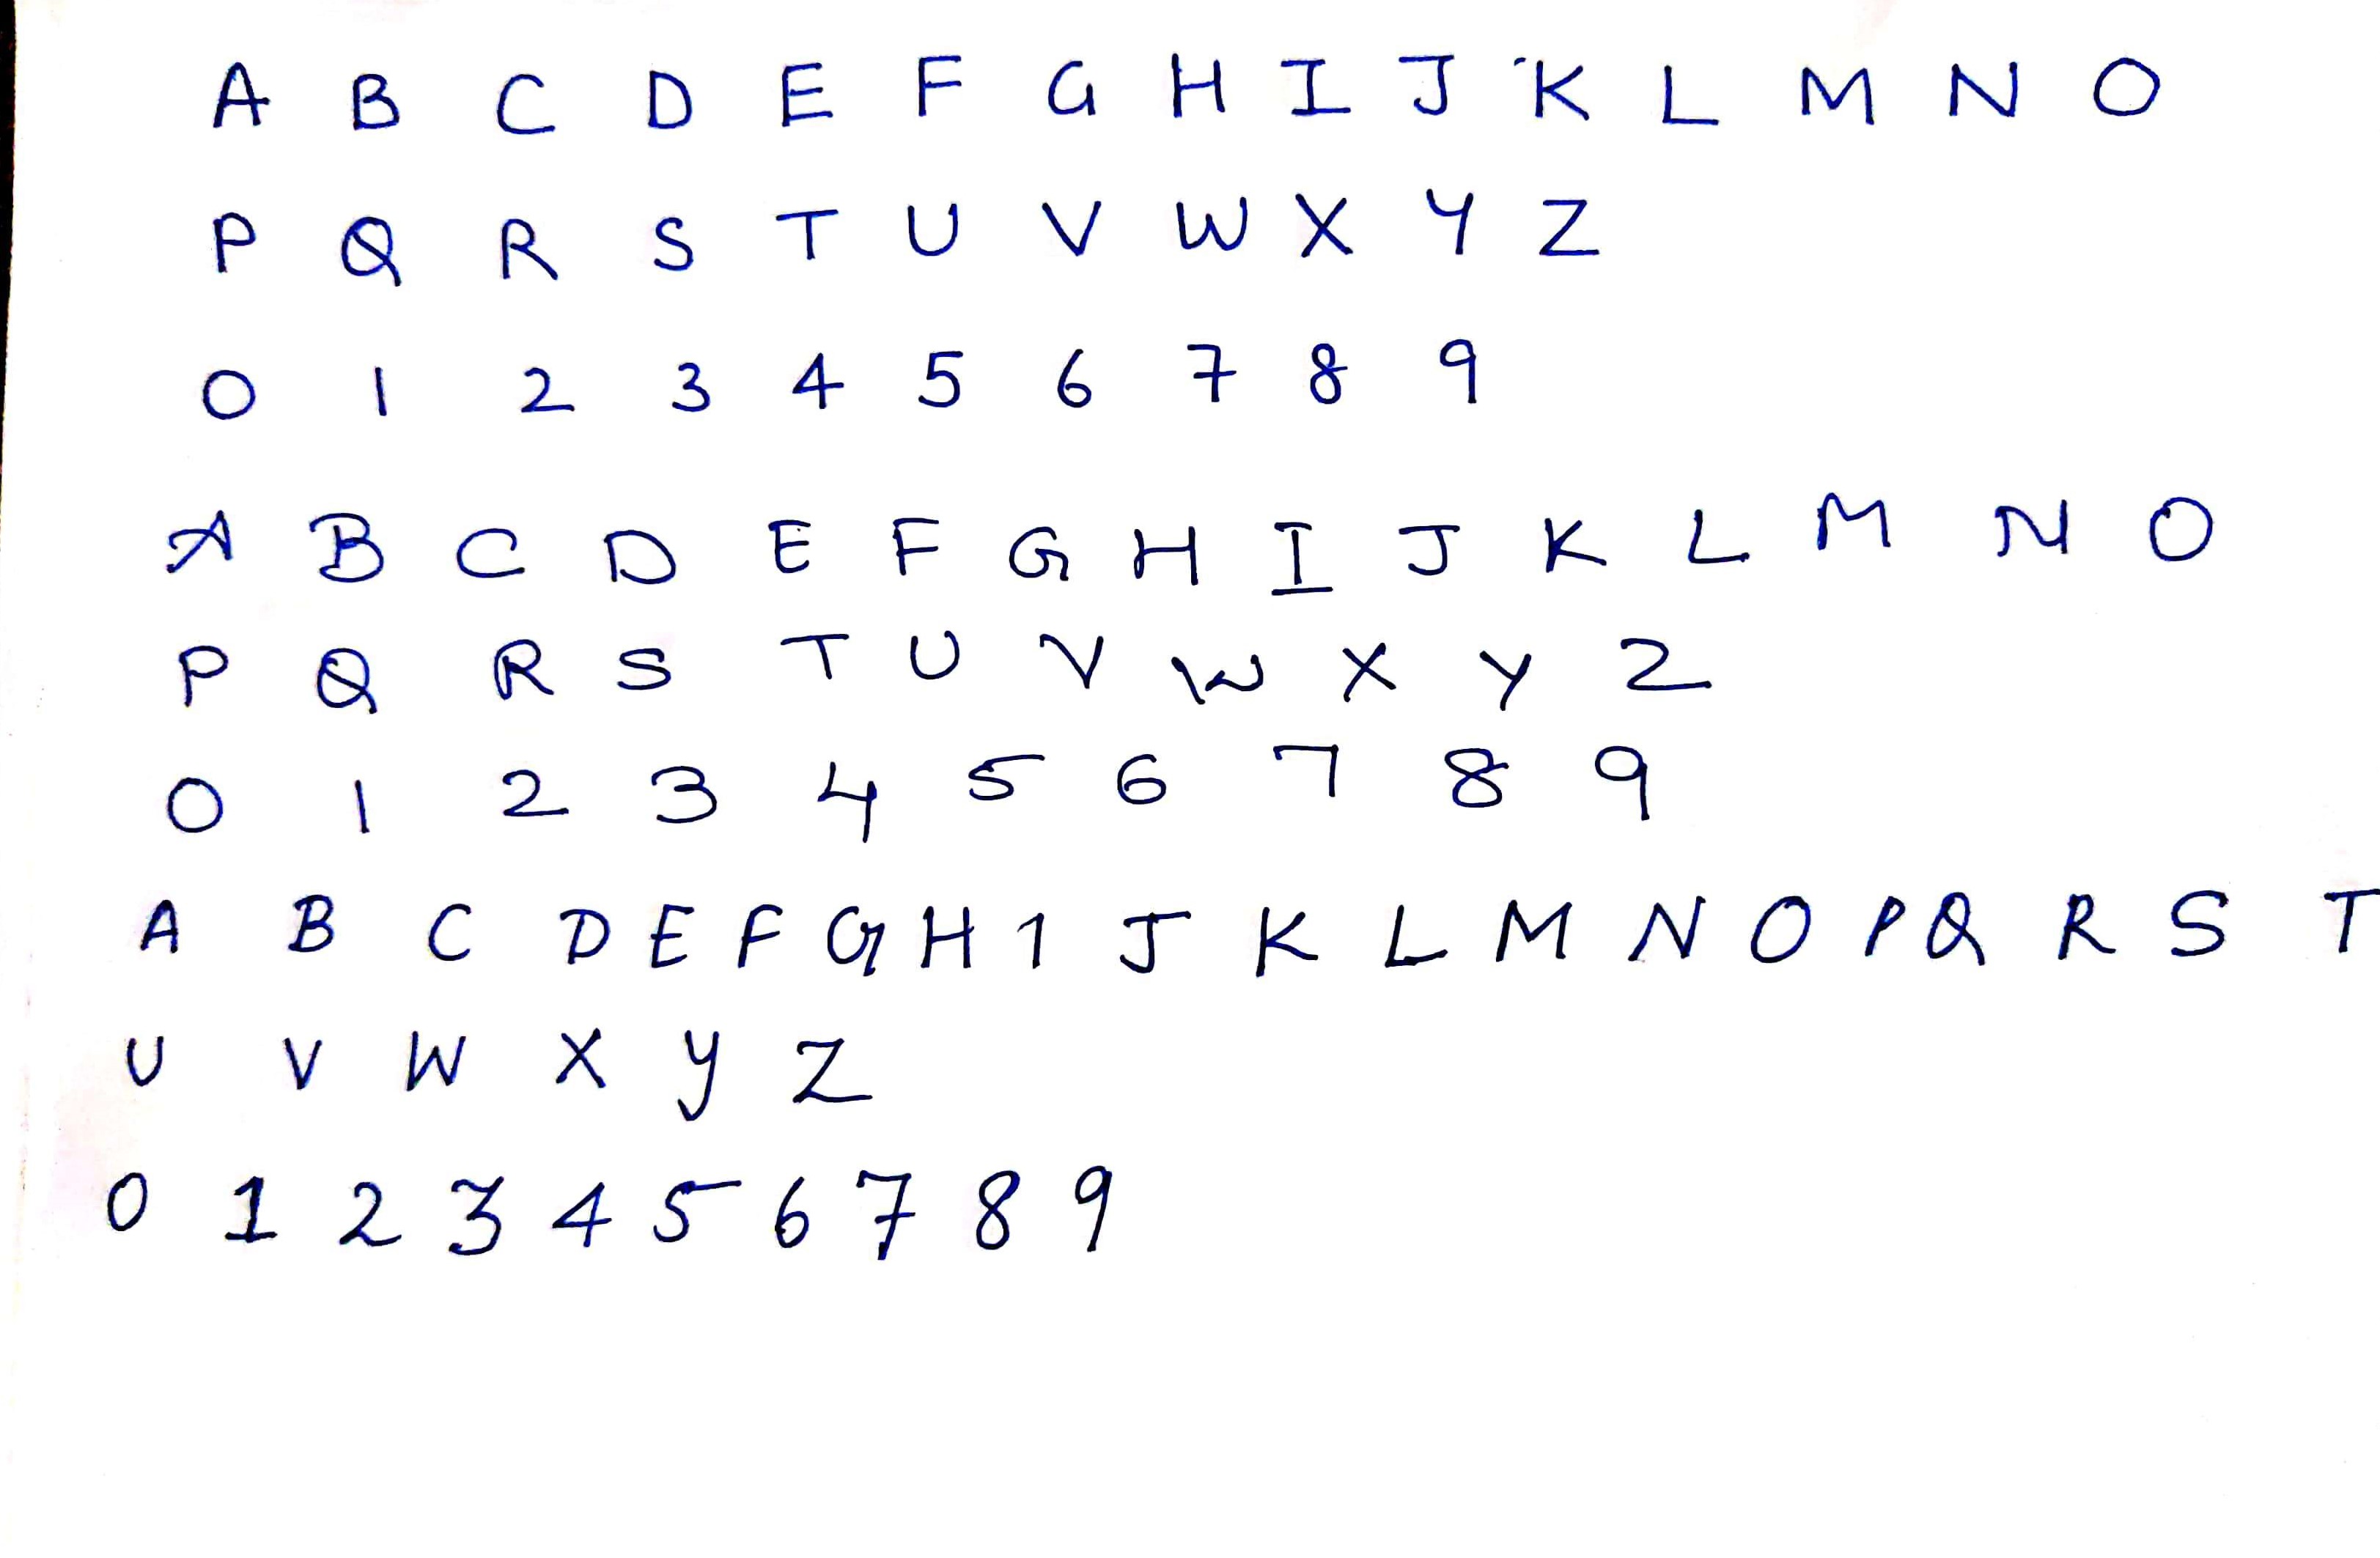 A B C D E F G H I J K L M N O
P Q R S T U V W X Y Z
0 1 2 3 4 5 6 7 8 9
A B C D E F G H I J K L M N O
P Q R S T U V W X Y Z
0 1 2 3 4 5 6 7 8 9
A B C D E F G H 1 J K L M N O P Q R S T
U V W X Y Z
0 1 2 3 4 5 6 7 8 9